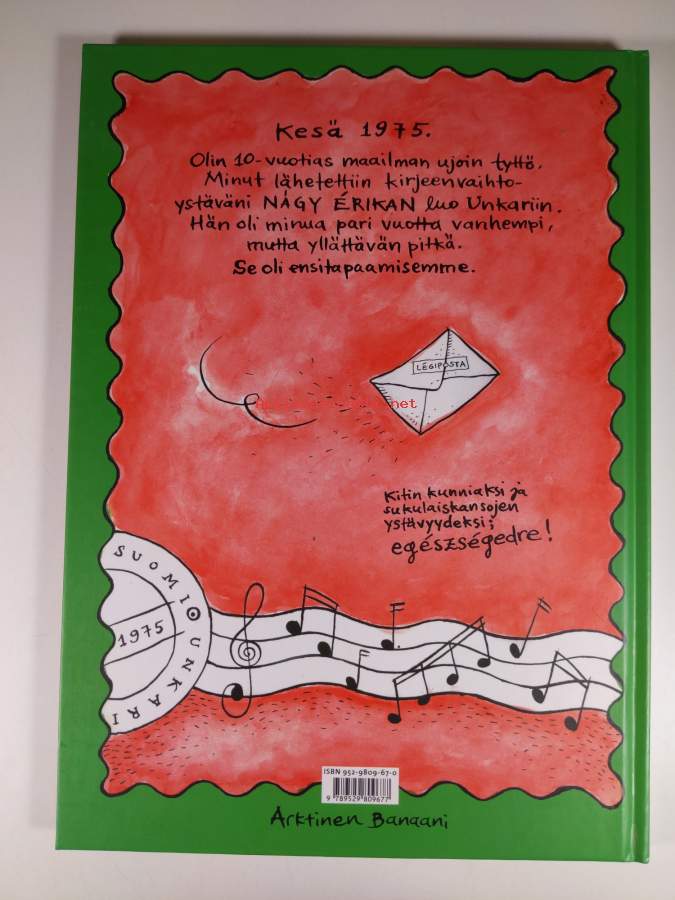 Kesä 1975.
Olin 10-vuotias maailman ujoin tyttö.
Minut lähetettiin kirjeenvaihto-
ystäväni NAGY ÉRIKAN luo Unkariin.
Hän oli minua pari vuotta vanhempi,
mutta yllättävän pitkä.
Se oli ensitapaamisemme.
LÉGIPOSTA
net
Kitin kunniaksi ja
sukulaiskansojen
ystävyydeksi;
egészségedre!
SUOMI UNKARI
1975
ISBN 952-9809-67-0
9 789529 809677
Arktinen Banaani